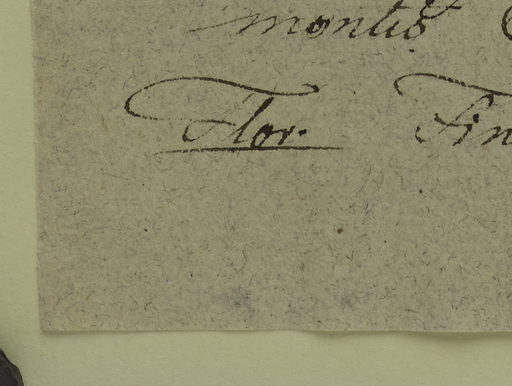 montis
Flor. Fin